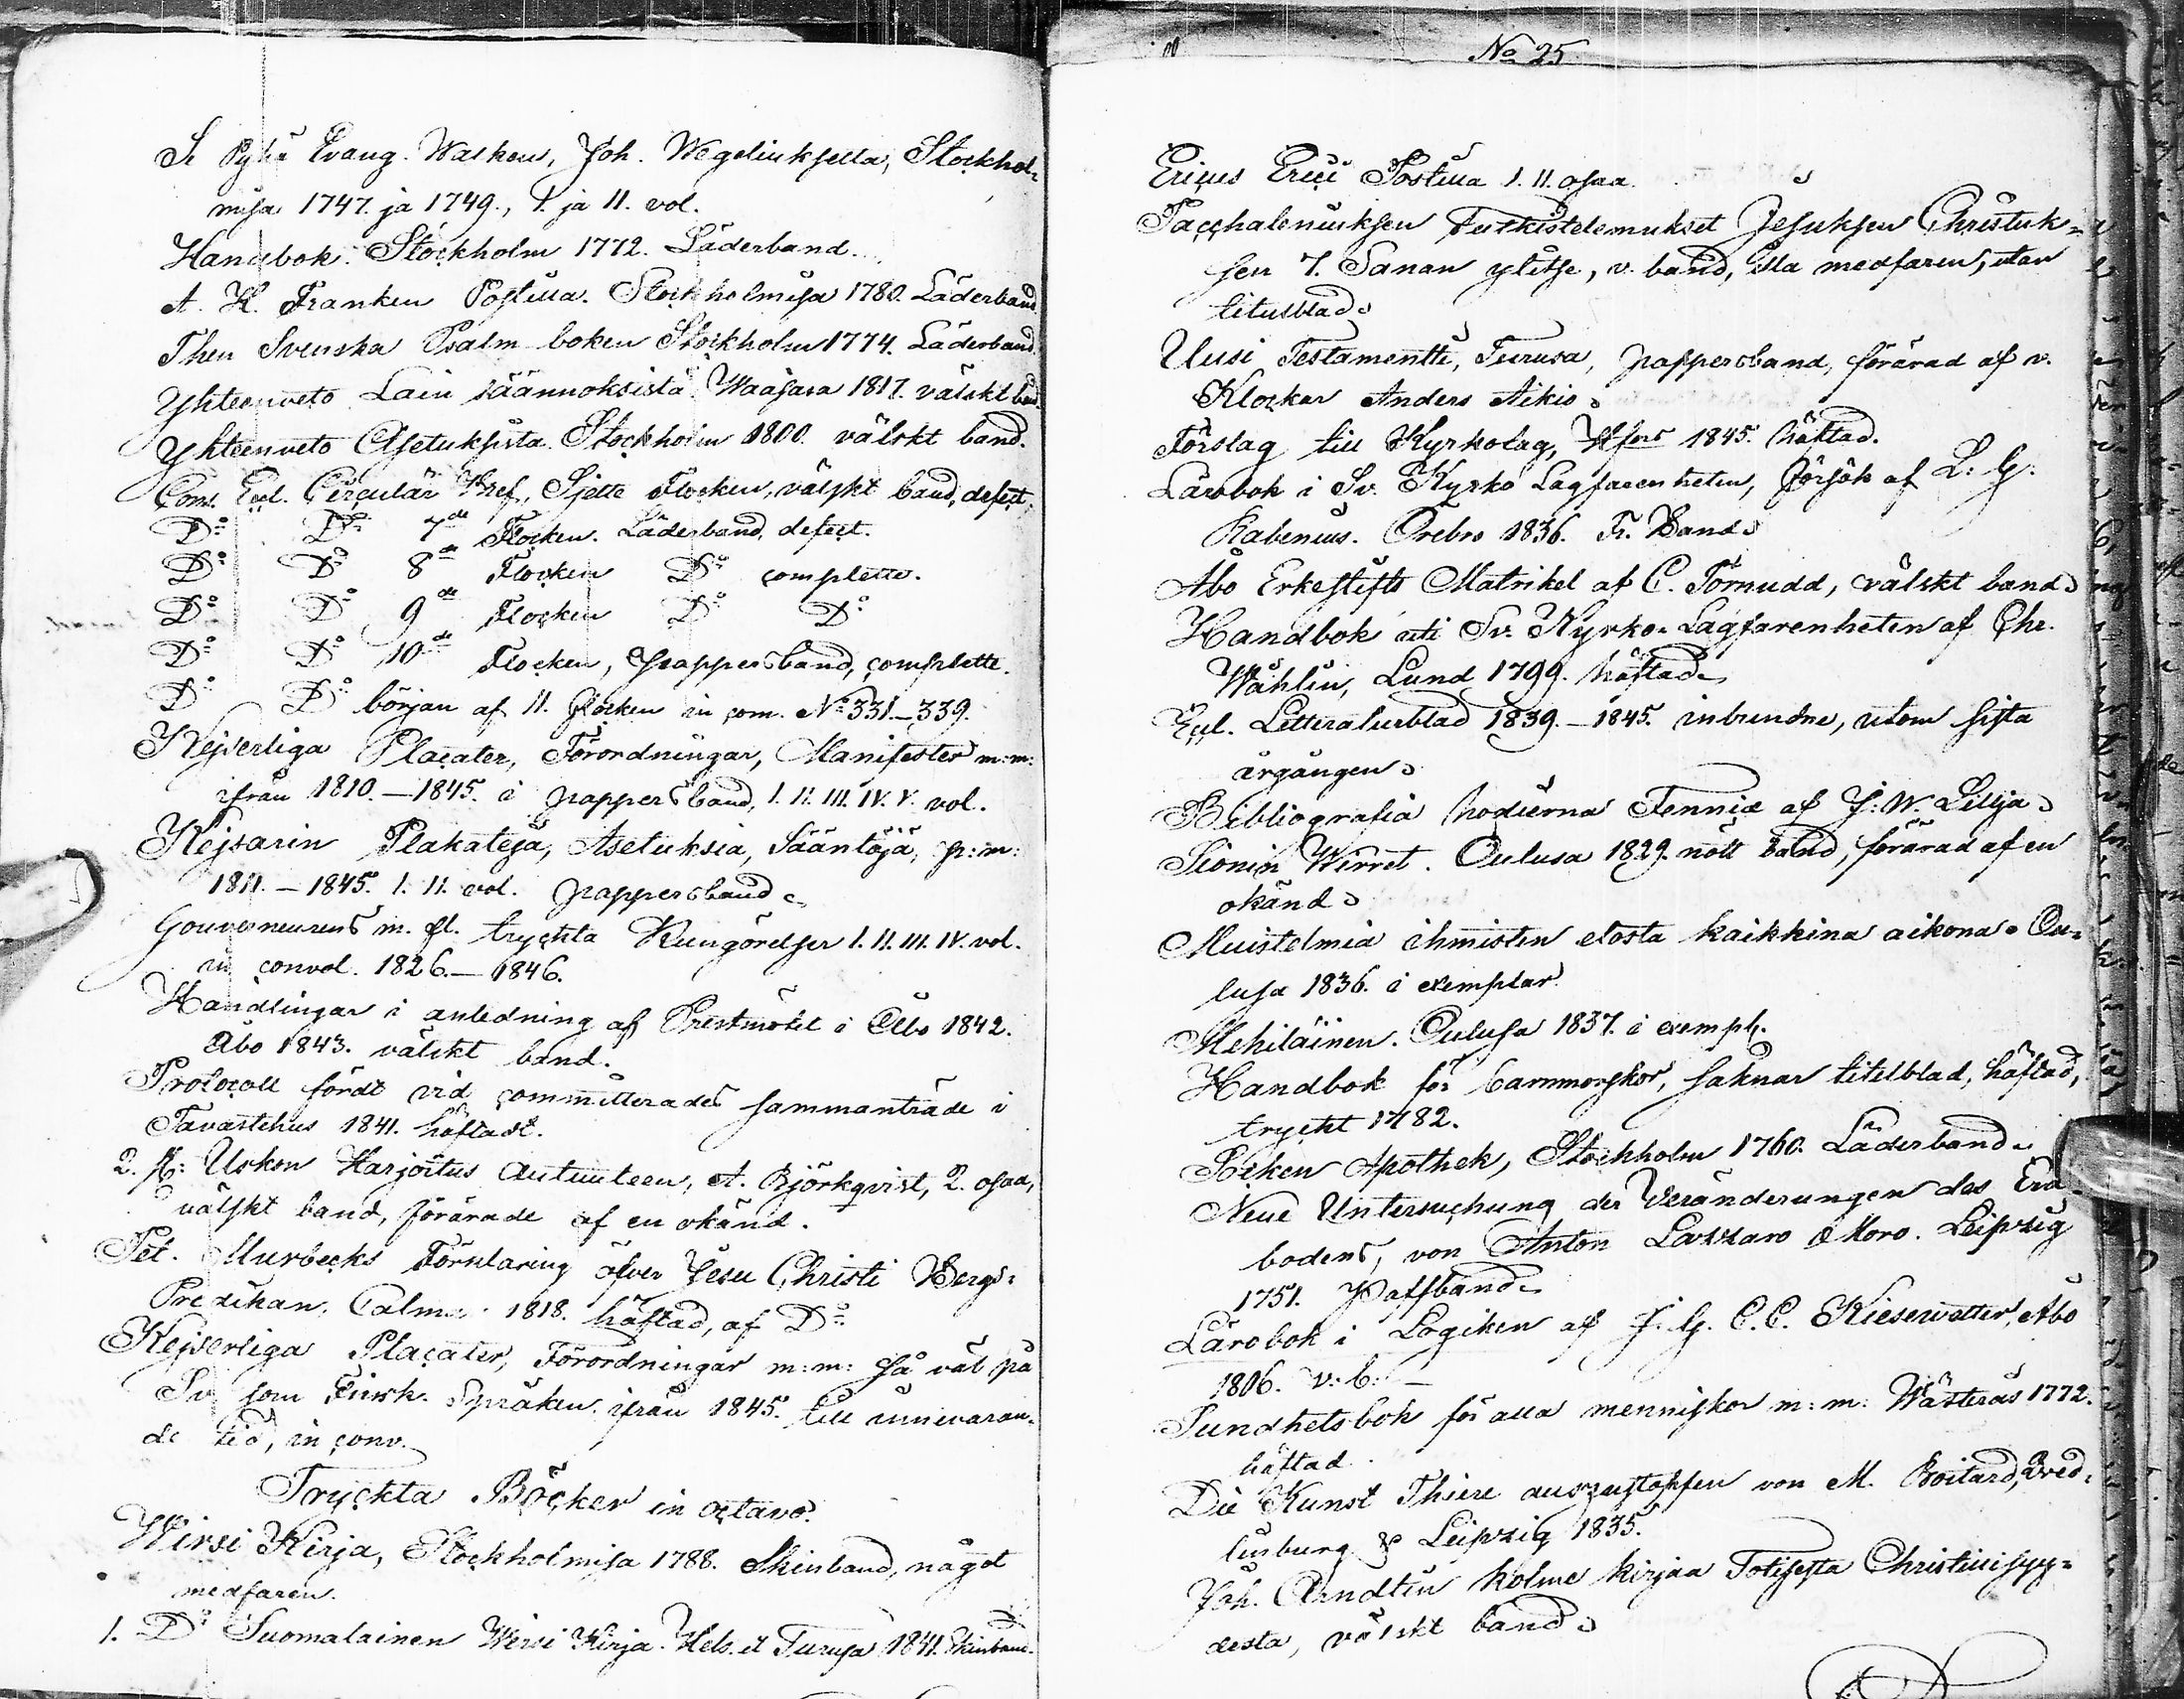 Se Pyhä Evang. Walkeus, Joh. Wegeliukselta, Stockhol-
misa 1747. ja 1749., I. ja II. vol.
Handbok. Stockholm 1772. Läderband.
A. H. Franken Postilla. Stockholmisa 1780. Läderband.
Then Svenska Psalm boken Stockholm 1774. Läderband.
Yhteenveto Lain säännöksistä Waasasa 1817. välskt band.
Yhteenveto Asetuksista Stockholm 1800. välskt band.
Cons. Eccl. Circulär Bref, Sjette Flocken, välskt band, defect.
Do Do 7de Flocken. Läderband, defect.
Do Do 8de Flocken Do complette.
Do Do 9de Flocken Do Do
Do Do 10de Flocken, Pappersband, complette.
Do Do början af 11. flocken in com. No 331–339.
Kejserliga Placater, Förordningar, Manifester m:m:
ifrån 1810.–1845. i pappersband, I. II. III. IV. V. vol.
Kejsarin Plakateja, Asetuksia, Sääntöjä, p:m:
1811.–1845. I. II. vol. pappersband
Gouverneurens m. fl. tryckta Kungörelser I. II. III. IV. vol.
in convol. 1826.–1846.
Handlingar i anledning af Prestmötet i Åbo 1842.
Åbo 1843. välskt band.
Protocoll fördt vid committerades sammanträde i
Tavastehus 1841. häftadt.
2. K: Uskon Harjoitus Autuuteen, A. Björkqvist, 2. osaa,
välskt band, förärade af en okänd.
Pet. Murbecks Förklaring öfver Jesu Christi Bergs-
Predikan, Calmar 1818. häftad, af Do
Kejserliga Placater, Förordningar m:m: så väl på
Sv. som Finsk. Språken ifrån 1845. till innevaran-
de tid, in conv.
Tryckta Böcker in octavo.
Wirsi Kirja, Stockholmisa 1788. Skinband, något
medfaren.
1. Do Suomalainen Wirsi Kirja. Hels. et Turusa 1841. Skinband.
No 25
Ericus Erici Postilla I. II. osaa.
Pacchaleniuksen Tutkistelemukset Jesuksen Christuk-
sen 7. Sanan ylitse, v. band, illa medfaren, utan
titelblad
Uusi Testamentti, Turusa, pappersband, förärad af v.
Klockar Anders Aikio
Förslag till Kyrkolag, Hfors 1845. häftad.
Lärobok i Sv. Kyrko Lagfarenheten, försök af L: G:
Rabenius. Örebro 1836. Fr. Band
Åbo Erkestifts Matrikel af C. Törnudd, välskt band
Handbok uti Sv. Kyrko-Lagfarenheten af Chr.
Wåhlin, Lund 1799. häftad
Eccl. Litteraturblad 1839.–1845. inbundne, utom sista
årgången
Bibliografia hodierna Fenniæ af J: W. Lillja
Sionin Wirret. Oulusa 1829. nött band, förärad af en
okänd
Muistelmia ihmisten elosta kaikkina aikona. Ou-
lusa 1836. 2 exemplar
Mehiläinen. Oulusa 1837. 2 exempl.
Handbok för barnmorskor, saknar titelblad, häftad,
tryckt 1782.
Siöken Apothek, Stockholm 1760. Läderband
Neue Untersuchung der Veränderungen des Erd-
bodens, von Anton Lazzaro Moro. Leipzig
1751. Paffband
Lärobok i Logiken af J: G. C. C. Kiesewetter, Åbo
1806. v: b:
Sundhetsbok för alla menniskor m: m: Wästerås 1772.
häftad.
Die Kunst Thiere auszustopfen von M. Boitard, Qved-
linburg & Leipzig 1835.
Joh. Arndtin kolme kirjaa Totisesta Christillisyy-
desta, välskt band